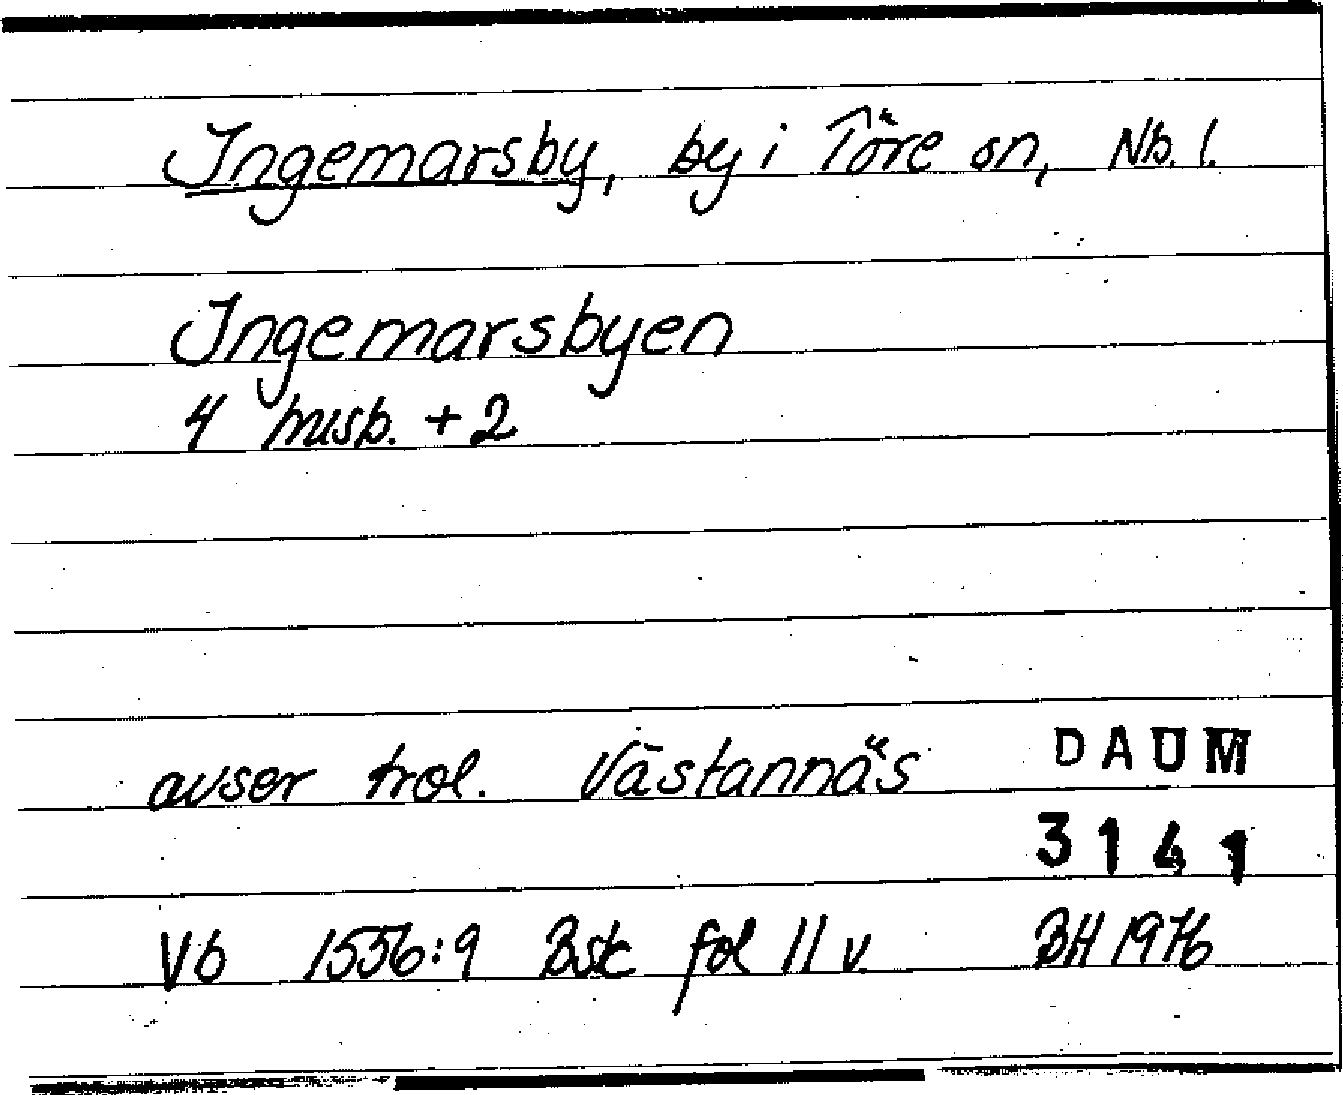 Ingemarsby, by i Töre sn, Nb. l.
Ingemarsbyen
4 husb. + 2
avser trol. Västannäs
DAUM
3141
Vb 1556:9 Bsk fol 11 v. BH 1976